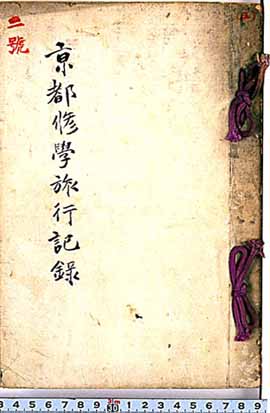 京都修學旅行記錄
二號
3 4 5 6 7 8 9 30 1 2 3 4 5 6 7 8 9